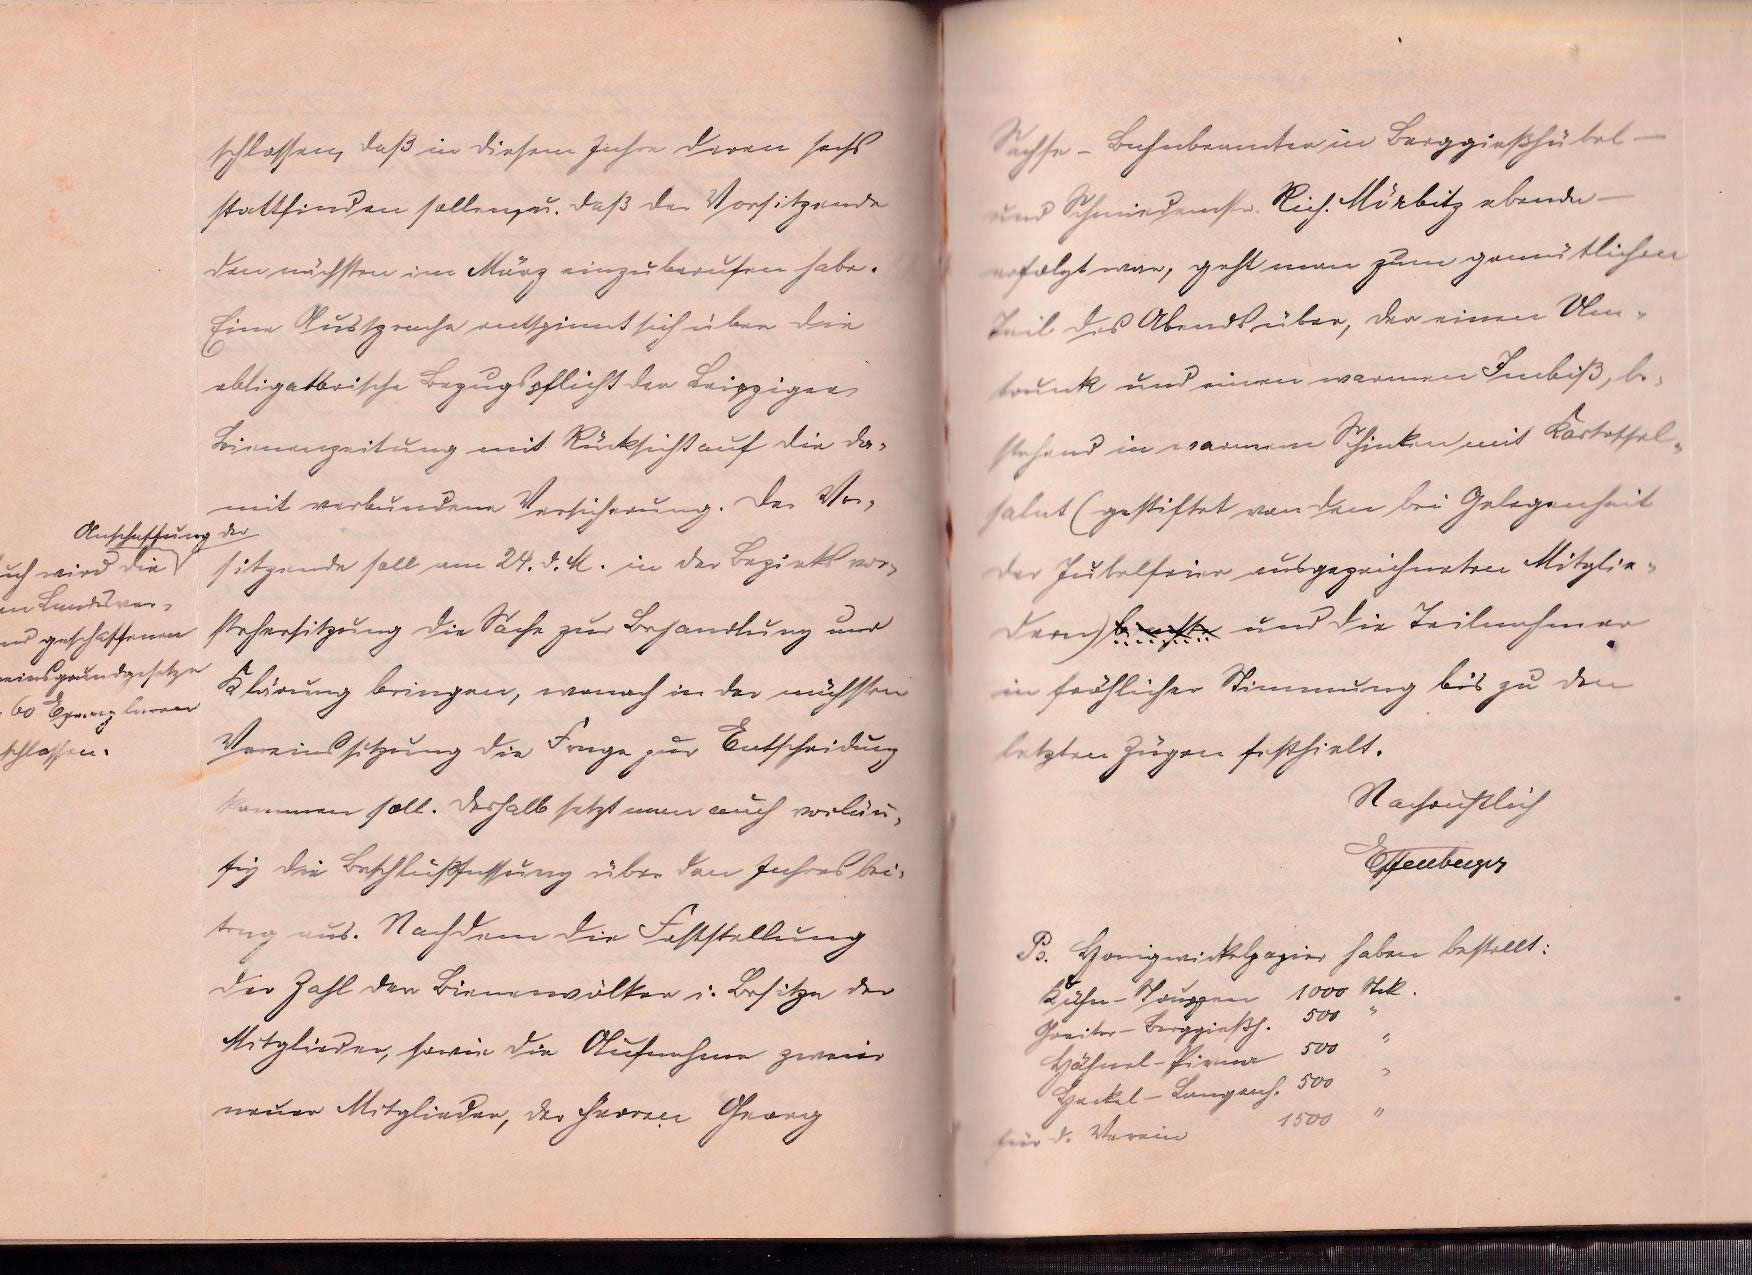 schlossen, daß in diesem Jahre deren sechs
stattfinden sollen, u. daß der Vorsitzende
den nächsten im März einzuberufen habe.
Eine Aussprache entspinnt sich über die
obligatorische Bezugspflicht der Leipziger
Bienenzeitung mit Rücksicht auf die da-
mit verbundene Versicherung. Der Vor-
sitzende soll am 24. d. M. in der Bezirksvor-
stehersitzung die Sache zur Behandlung und
Klärung bringen, wonach in der nächsten
Vereinssitzung die Frage zur Entscheidung
kommen soll. Deshalb setzt man auch vorläu-
fig die Beschlußfassung über den Jahresbei-
trag aus. Nachdem die Feststellung
der Zahl der Bienenvölker i. Besitze der
Mitglieder, sowie die Aufnahme zweier
neuer Mitglieder, der Herren Georg
Anschaffung der
uch wird die
en Landesver-
geschaffenen
einsgrundgesetze
60 Exemplaren
schlossen.
Sachse - Bahnbeamter in Berggießhübel -
und Schmiedemstr. Rich. Mörbitz ebenda -
erfolgt war, geht man zum gemütlichen
Teil des Abends über, der einen Um-
trunk und einen warmen Imbiß, be-
stehend in warmem Schinken mit Kartoffel-
salat (gestiftet von den bei Gelegenheit
der Jubelfeier ausgezeichneten Mitglie-
dern) und die Teilnehmer
in fröhlicher Stimmung bis zu den
letzten Zügen festhielt.
Nachrichtlich
Effenberger
Ps. Honigwickelpapier haben bestellt:
Kühn - Struppen 1000 Stck.
Greiter - Berggießh. 500 "
Hähnel - Pirna 500 "
Henkel - Langenh. 500 "
für d. Verein 1500 "